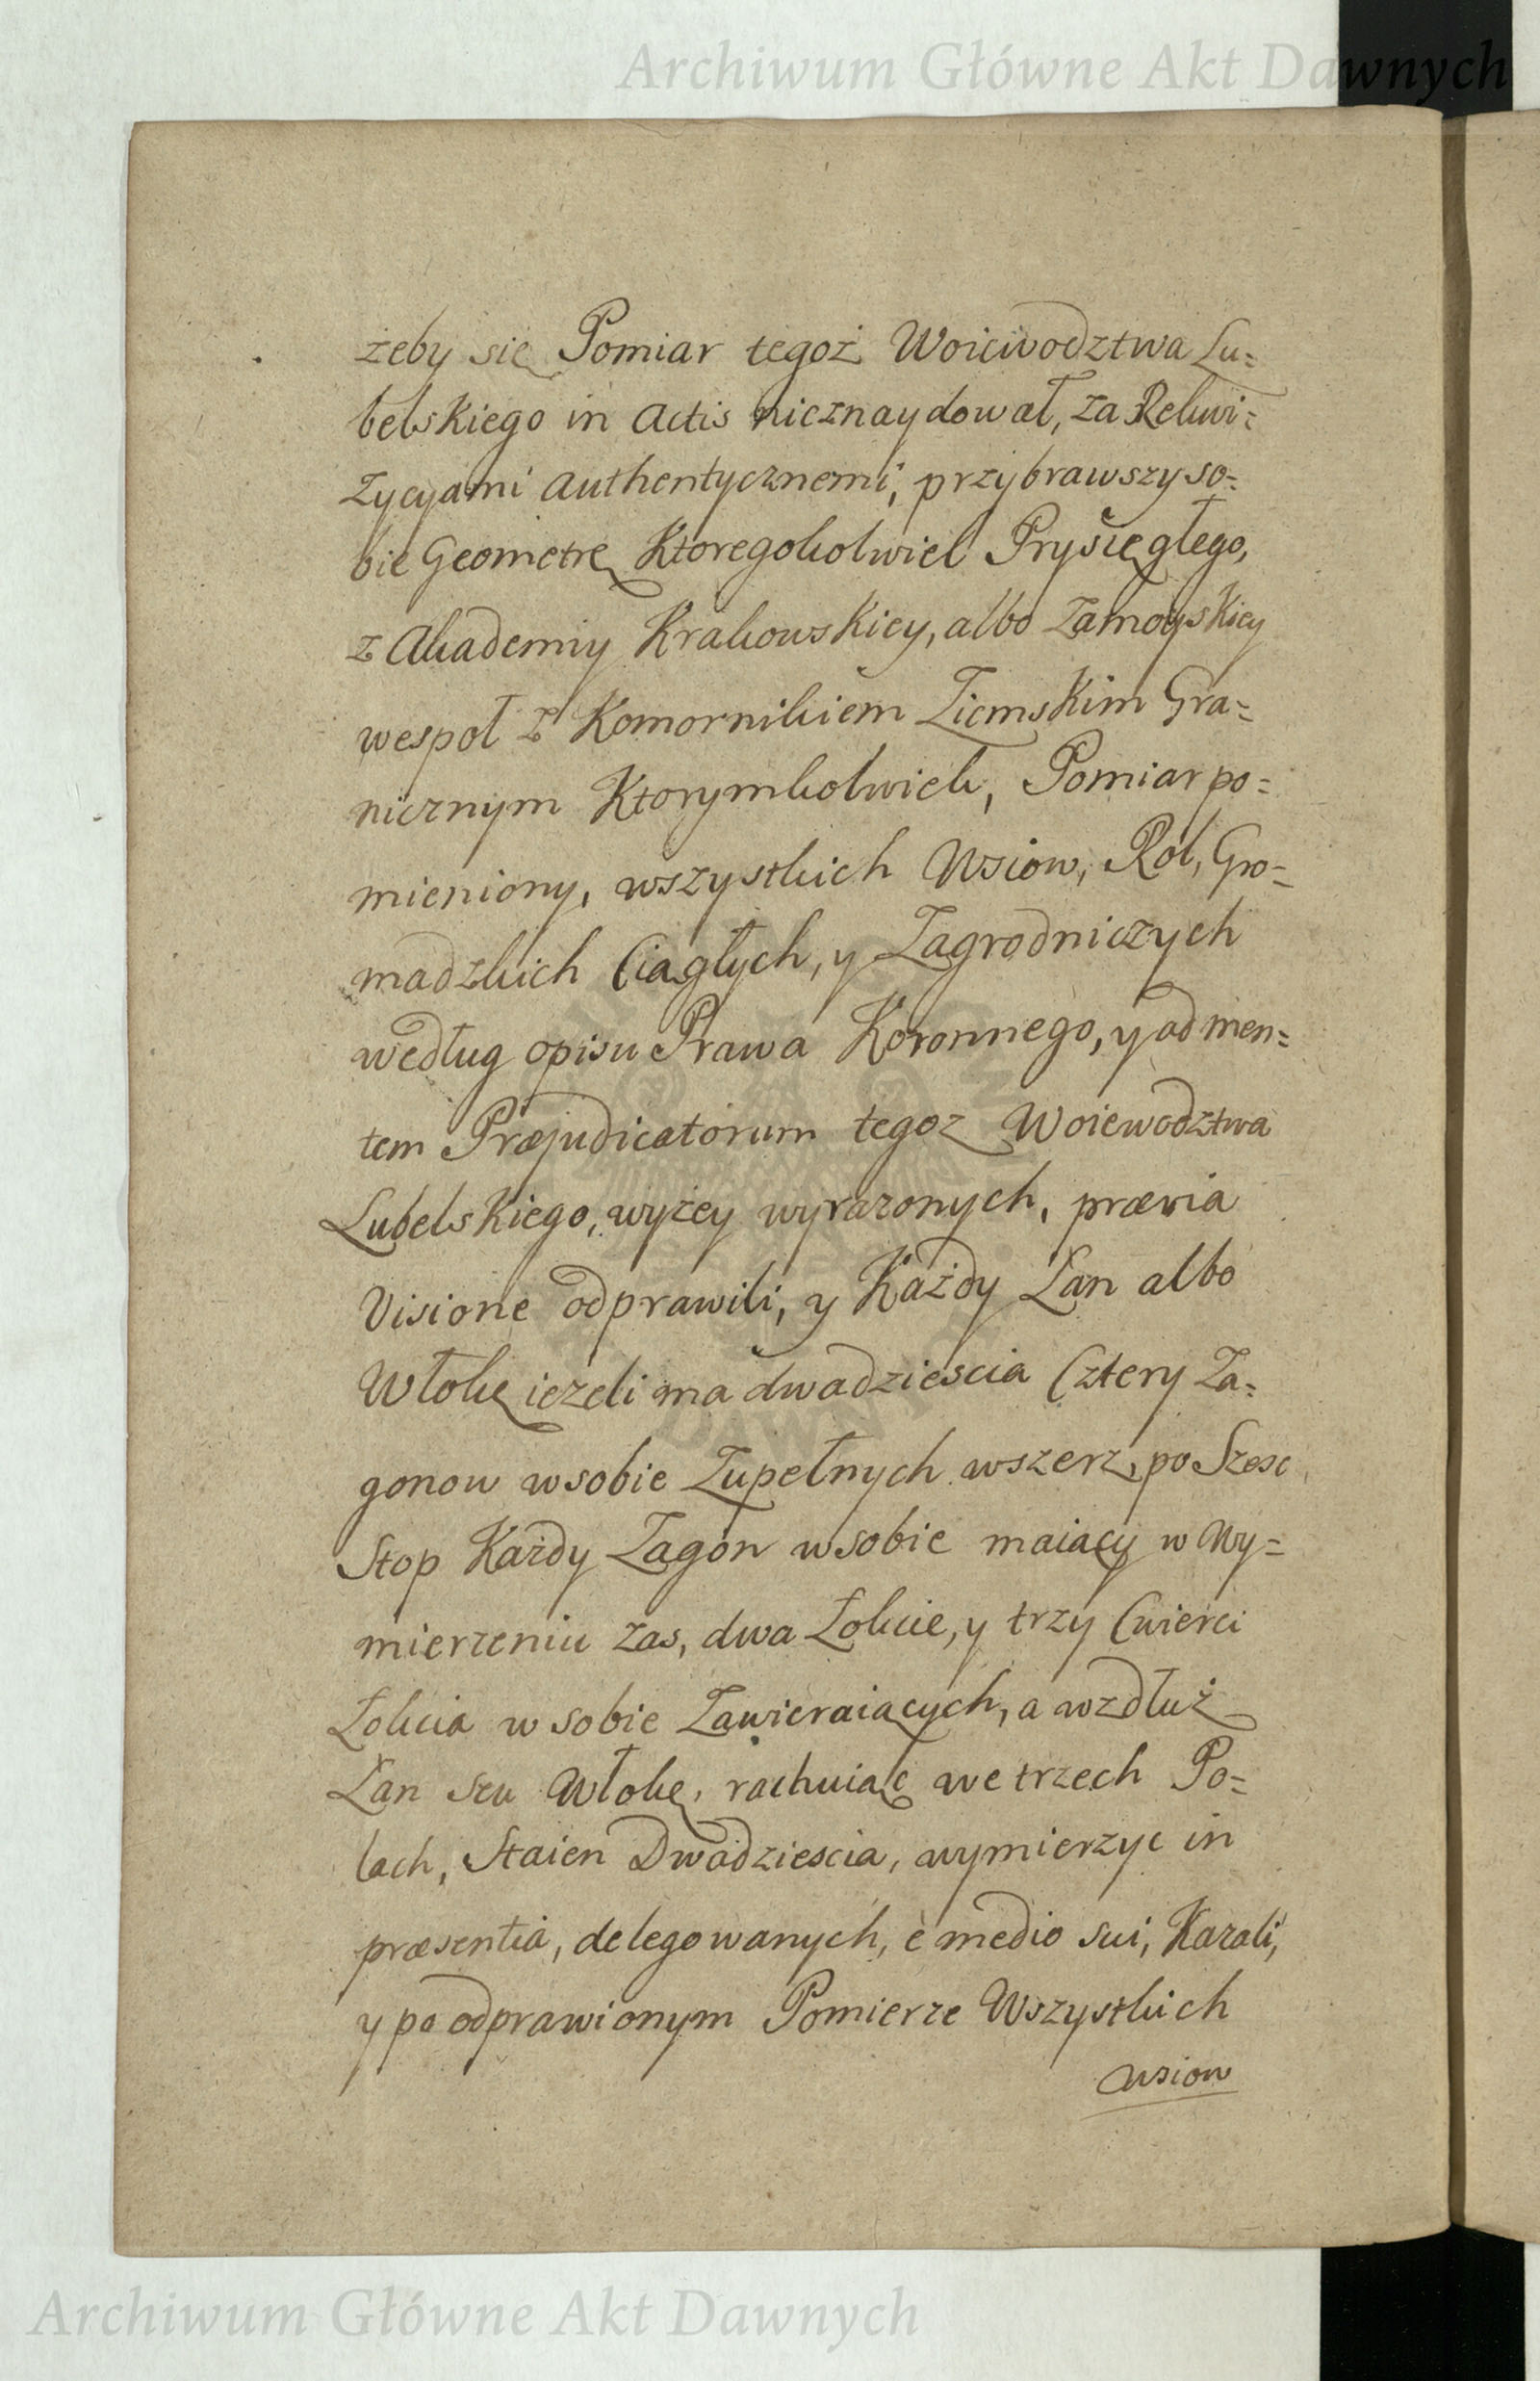 Archiwum Główne Akt Dawnych
żeby się Pomiar tegoż Woiewodztwa Lu=
belskiego in Actis nieznaydował, za Rekwi=
zycyami Authentycznemi, przybrawszy so=
bie Geometrę Ktoregokolwiek Prysięgłego,
z Akademiy Krakowskiey, albo Zamoyskiey
wespoł z Komornikiem Ziemskim Gra=
nicznym Ktorymkolwiek, Pomiar po=
mieniony, wszystkich Wsiow, Rol, Gro=
madzkich Ciągłych, y Zagrodniczych
według opisu Prawa Koronnego, y ad men=
tem Præjudicatorum tegoz Woiewodztwa
Lubelskiego, wyżey wyrazonych, prævia
Visione odprawili, y Każdy Łan albo
Włokę ieżeli ma dwadziescia Cztery Za=
gonow wsobie Zupełnych wszerz, po Szesc
Stop Każdy Zagon wsobie maiący w Wy=
mierzeniu zas, dwa Łokcie, y trzy Cwierci
Łokcia w sobie Zawieraiących, a wzdłuż
Łan seu Włokę, rachuiąc we trzech Po=
lach, Staien Dwadziescia, wymierzyc in
præsentia, delegowanych, e medio sui, Kazali,
y po odprawionym Pomierze Wszystkich
Wsiow
Archiwum Główne Akt Dawnych